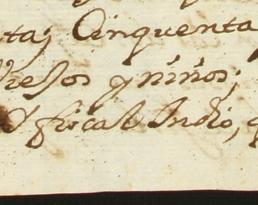 ta; Cinquenta
Viejos y niños;
fiscal Indio,